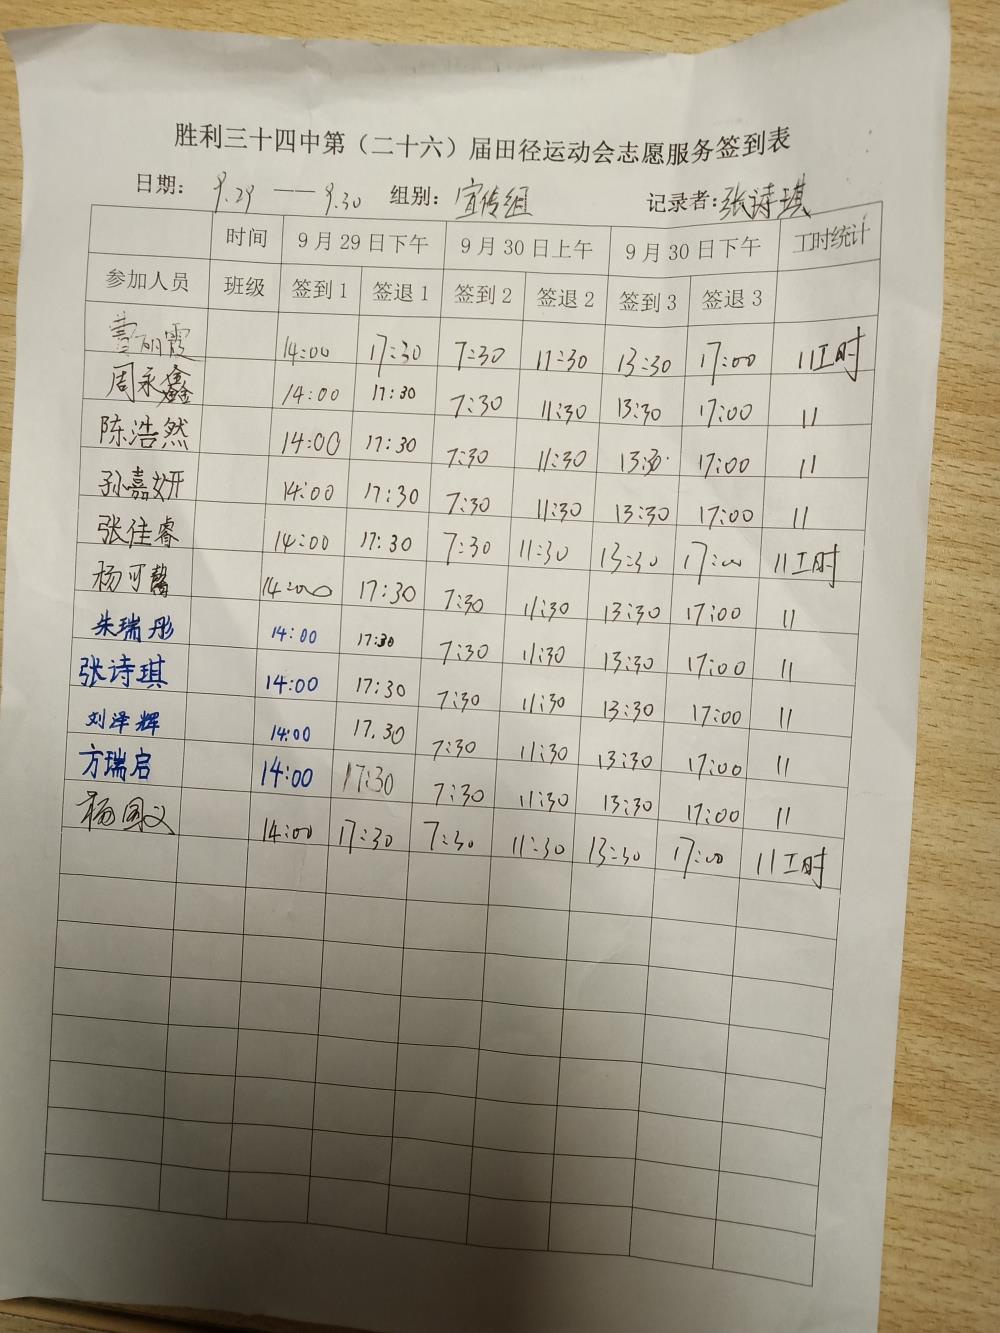 胜利三十四中第（二十六）届田径运动会志愿服务签到表
日期： 9.29 —— 9.30 组别：宣传组 记录者：张诗琪
时间 9月29日下午 9月30日上午 9月30日下午 工时统计
参加人员 班级 签到1 签退1 签到2 签退2 签到3 签退3
丽霞 14:00 17:30 7:30 11:30 13:30 17:00 11工时
周永鑫 14:00 17:30 7:30 11:30 13:30 17:00 11
陈浩然 14:00 17:30 7:30 11:30 13:30 17:00 11
孙嘉妍 14:00 17:30 7:30 11:30 13:30 17:00 11
张佳睿 14:00 17:30 7:30 11:30 13:30 17:00 11工时
杨可馨 14:00 17:30 7:30 11:30 13:30 17:00 11
朱瑞彤 14:00 17:30 7:30 11:30 13:30 17:00 11
张诗琪 14:00 17:30 7:30 11:30 13:30 17:00 11
刘泽辉 14:00 17.30 7:30 11:30 13:30 17:00 11
方瑞启 14:00 17:30 7:30 11:30 13:30 17:00 11
杨国义 14:00 17:30 7:30 11:30 13:30 17:00 11工时